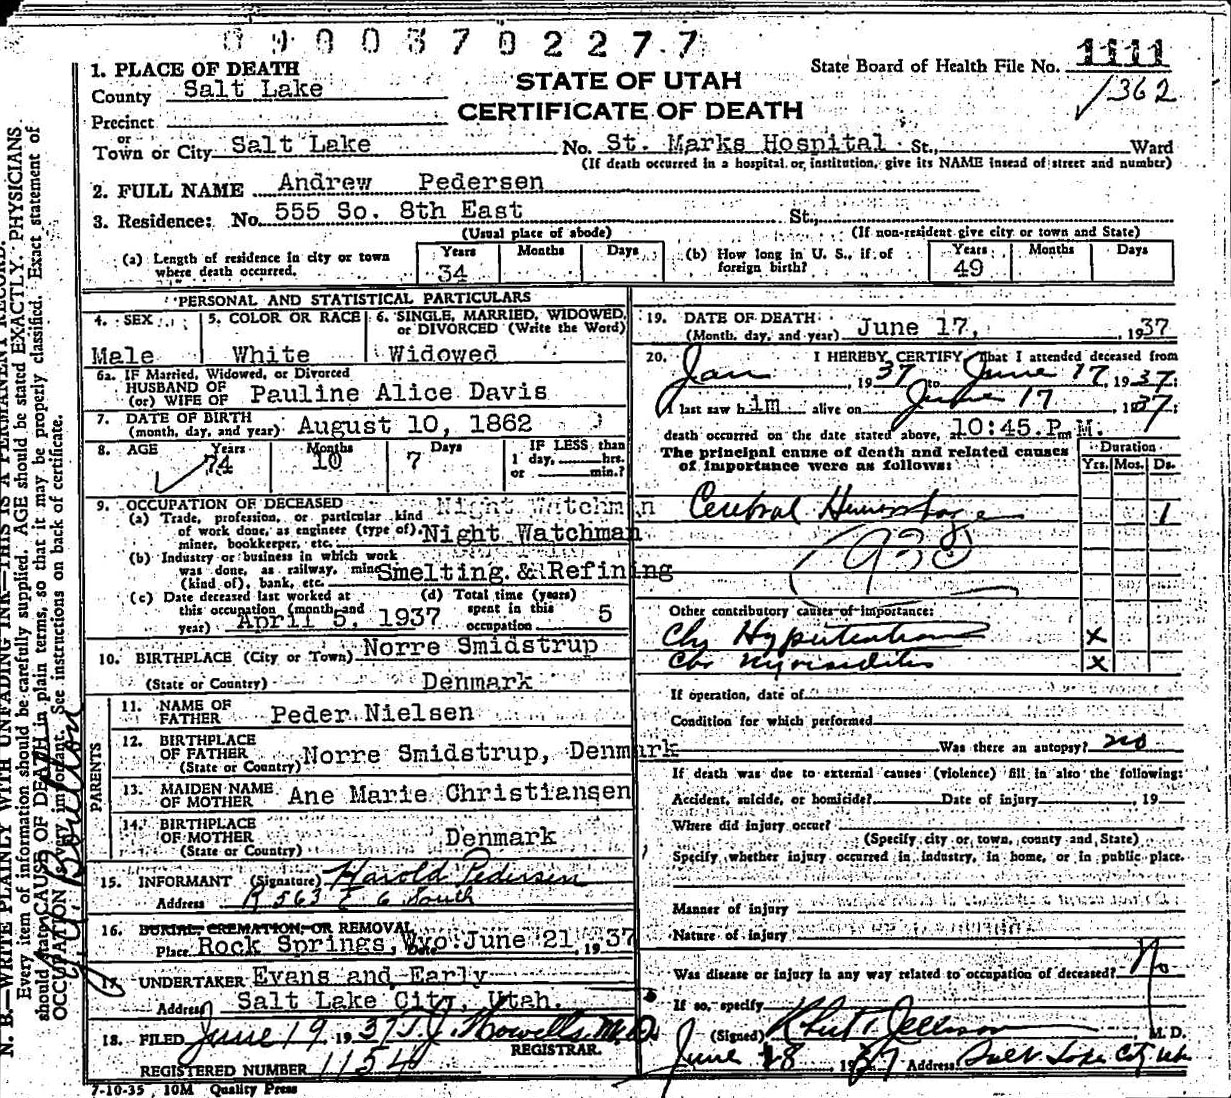 0900370227 7
1. PLACE OF DEATH
County Salt Lake
STATE OF UTAH
CERTIFICATE OF DEATH
State Board of Health File No. 1111
1362
Precinct
or
Town or City Salt Lake No. St. Marks Hospital St., Ward
(If death occurred in a hospital or institution, give its NAME instead of street and number)
2. FULL NAME Andrew Pedersen
3. Residence: No. 555 So. 8th East St.,
(Usual place of abode) (If non-resident give city or town and State)
(a) Length of residence in city or town where death occurred. Years 34 Months Days
(b) How long in U. S., if of foreign birth? Years 49 Months Days
PERSONAL AND STATISTICAL PARTICULARS
4. SEX Male
5. COLOR OR RACE White
6. SINGLE, MARRIED, WIDOWED, or DIVORCED (Write the Word) Widowed
6a. IF Married, Widowed, or Divorced
HUSBAND OF
(or) WIFE OF Pauline Alice Davis
7. DATE OF BIRTH
(month, day, and year) August 10, 1862
8. AGE Years 74 Months 10 Days 7 IF LESS than
1 day, hrs.
or min.?
9. OCCUPATION OF DECEASED Night Watchman
(a) Trade, profession, or particular kind
of work done, as engineer (type of) Night Watchman
miner, bookkeeper, etc.
(b) Industry or business in which work
was done, as railway, mine Smelting & Refining
(kind of), bank, etc.
(c) Date deceased last worked at
this occupation (month and
year) April 5, 1937
(d) Total time (years)
spent in this
occupation 5
10. BIRTHPLACE (City or Town) Norre Smidstrup
(State or Country) Denmark
PARENTS
11. NAME OF
FATHER Peder Nielsen
12. BIRTHPLACE
OF FATHER Norre Smidstrup, Denmark
(State or Country)
13. MAIDEN NAME
OF MOTHER Ane Marie Christiansen
14. BIRTHPLACE
OF MOTHER Denmark
(State or Country)
15. INFORMANT (Signature) Harold Pedersen
Address R 563 E 6 South
16. BURIAL, CREMATION, OR REMOVAL
Place Rock Springs, Wyo. Date June 21, 1937
17. UNDERTAKER Evans and Early
Address Salt Lake City, Utah.
18. FILED June 19 1937 T.J. Howells M.D.
REGISTRAR.
REGISTERED NUMBER 1154
7-10-35 10M Quality Press
19. DATE OF DEATH
(Month, day, and year) June 17, 1937
20. I HEREBY CERTIFY, That I attended deceased from
Jan 1937 to June 17, 1937;
I last saw him alive on June 17 1937;
death occurred on the date stated above, 10:45.P.M.
The principal cause of death and related causes
of importance were as follows:
Duration
Yrs. Mos. Ds.
Cerebral Hemorrhage 1
Other contributory causes of importance:
Chr Hypertension x
Chr Myocarditis x
If operation, date of
Condition for which performed
Was there an autopsy? no
If death was due to external causes (violence) fill in also the following:
Accident, suicide, or homicide? Date of injury , 19
Where did injury occur?
(Specify city or town, county and State)
Specify whether injury occurred in industry, in home, or in public place.
Manner of injury
Nature of injury
Was disease or injury in any way related to occupation of deceased? No
If so, specify
(Signed) M. D.
June 18 1937 Address Salt Lake City Ut
N. B.—WRITE PLAINLY WITH UNFADING INK—THIS IS A PERMANENT RECORD.
Every item of information should be carefully supplied. AGE should be stated EXACTLY. PHYSICIANS
should state CAUSE OF DEATH in plain terms, so that it may be properly classified. Exact statement of
OCCUPATION is very important. See instructions on back of certificate.